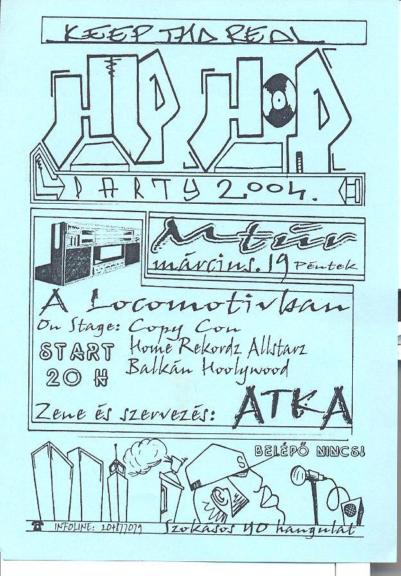 KEEP THA REAL
HIP HOP
PARTY 2004.
Mtúr
március. 19 Péntek
A Locomotivban
On Stage: Copy Con
Home Rekordz Allstarz
Balkán Hoolywood
START
20 H
Zene és szervezés: ATKA
BELÉPŐ NINCS!
S
☎ INFOLINE: 204877079
Szokásos YO hangulat